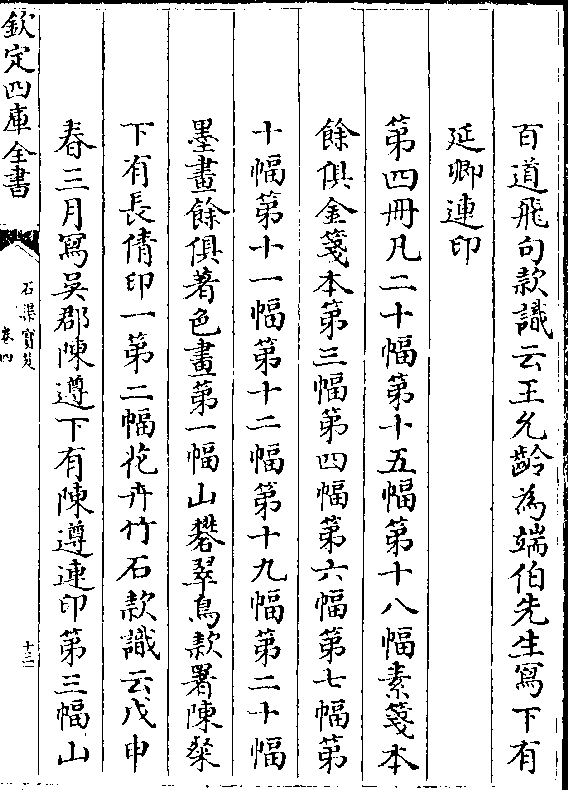 百道飛句款識云王允齡為端伯先生寫下有
延卿連印
第四冊凡二十幅第十五幅第十八幅素箋本
餘俱金箋本第三幅第四幅第六幅第七幅第
十幅第十一幅第十二幅第十九幅第二十幅
墨畫餘俱著色畫第一幅山礬翠鳥款署陳粲
下有長倩印一第二幅花卉竹石款識云戊申
春三月寫吳郡陳遵下有陳遵連印第三幅山
欽定四庫全書
石渠寶笈
卷四
十三